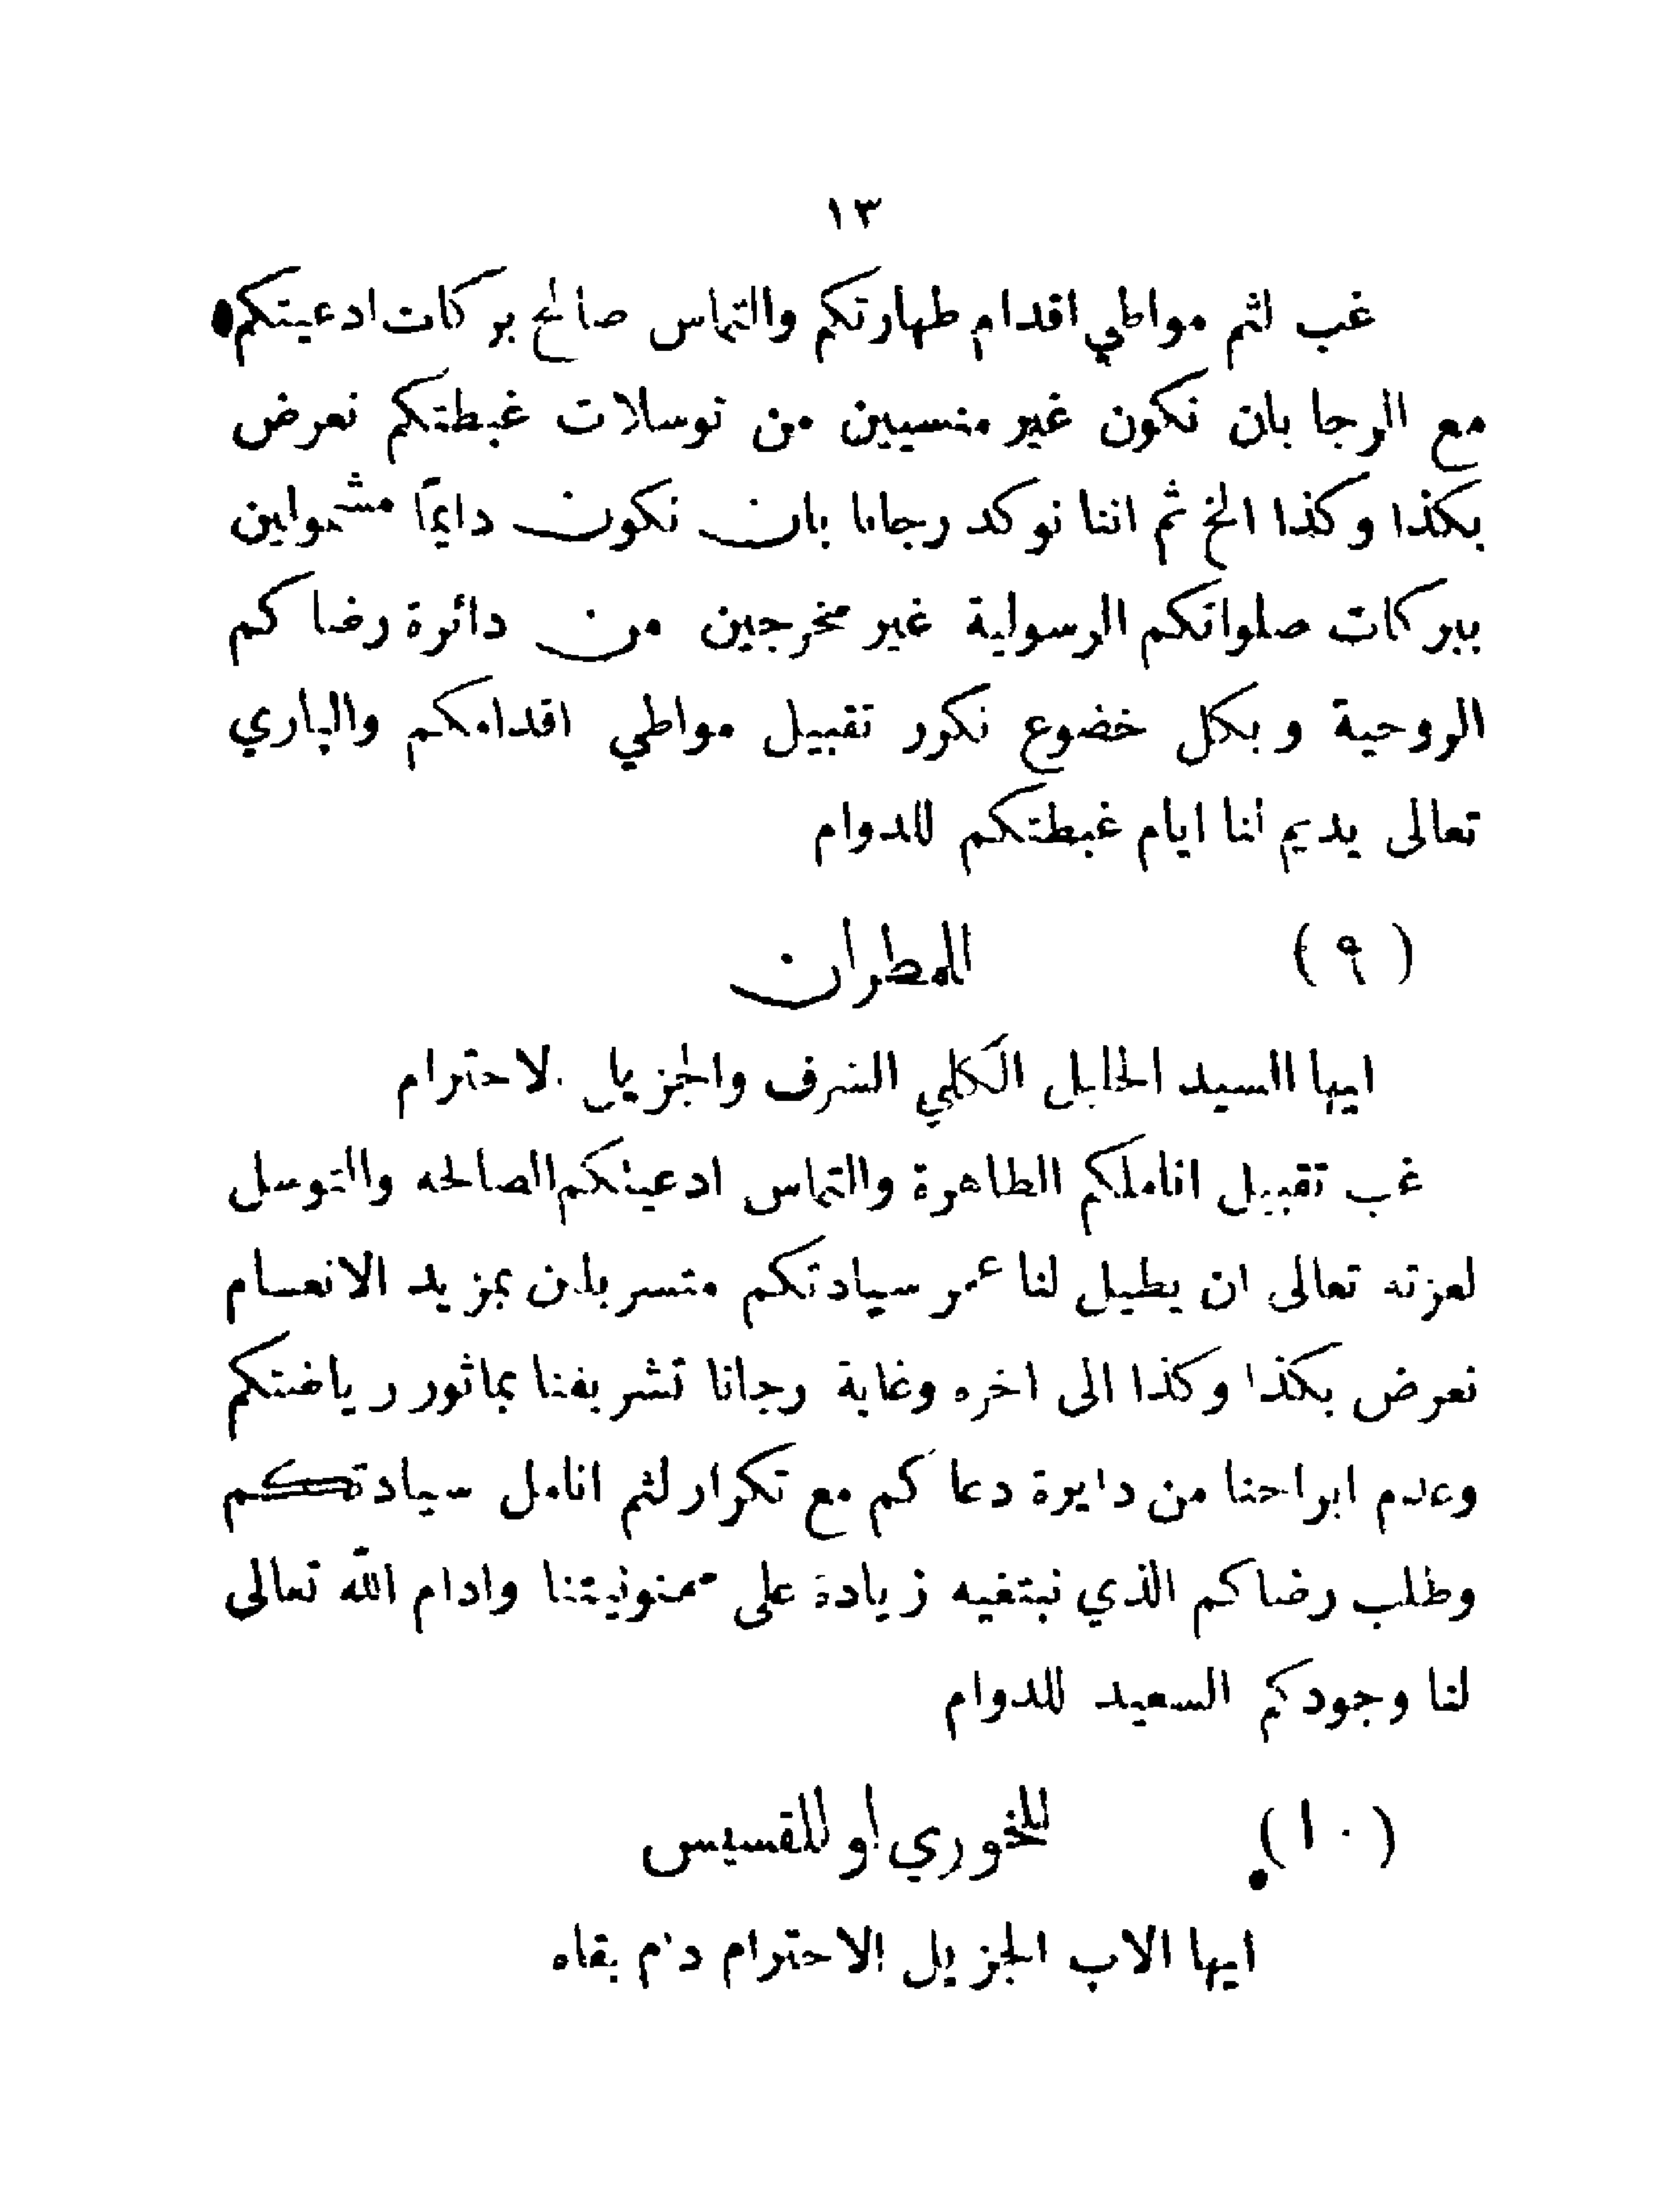 ١٣
غب لثم مواطي اقدام طهارتكم والتماس صالح بركات ادعيتكم
مع الرجا بان نكون غير منسيين من توسلات غبطتكم نعرض
بكذا وكذا الخ ثم اننا نوكد رجانا بان نكون دايمًا مشمولين
ببركات صلواتكم الرسولية غير مخرجين من دائرة رضاكم
الروحية وبكل خضوع نكرر تقبيل مواطي اقدامكم والباري
تعالى يديم لنا ايام غبطتكم للدوام
(٩) للمطران
ايها السيد الجليل الكلي الشرف والجزيل الاحترام
غب تقبيل اناملكم الطاهرة والتماس ادعيتكم الصالحه والتوسل
لعزته تعالى ان يطيل لنا عمر سيادتكم متسربلين بمزيد الانعام
نعرض بكذا وكذا الى اخره وغاية رجانا تشريفنا بماثور رياضتكم
وعدم ابراحنا من دايرة دعاكم مع تكرار لثم انامل سيادتكم
وطلب رضاكم الذي نبتغيه زيادة على ممنونيتنا وادام الله تعالى
لنا وجودكم السعيد للدوام
(١٠) للخوري او للقسيس
ايها الاب الجزيل الاحترام دام بقاه